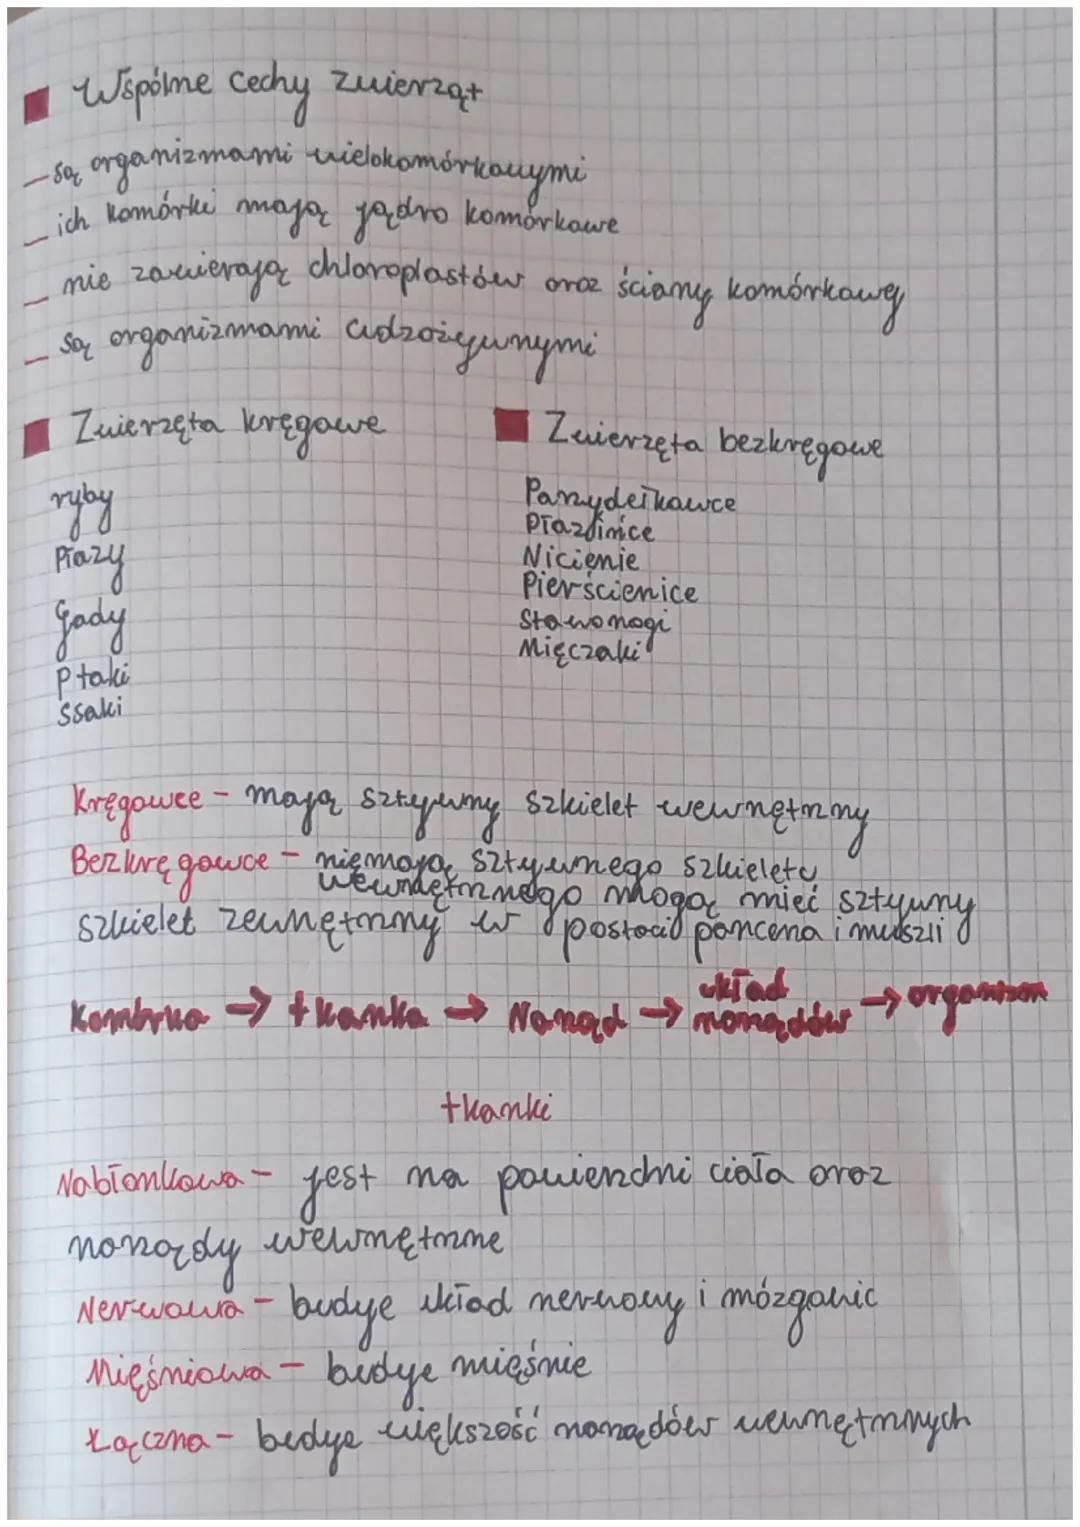 Wspólne cechy zwierząt
- są organizmami wielokomórkowymi
- ich komórki mają jądro komórkowe
- nie zawierają chloroplastów oraz ściany komórkowej
- są organizmami cudzożywnymi
Zwierzęta kręgowe
ryby
Płazy
Gady
Ptaki
Ssaki
Zwierzęta bezkręgowe
Parzydełkowce
Płazińce
Nicienie
Pierścienice
Stawonogi
Mięczaki
Kręgowce - mają sztywny szkielet wewnętrzny
Bezkręgowce - niemają sztywnego szkieletu
wewnętrznego mogą mieć sztywny
szkielet zewnętrzny w postaci pancerza i muszli
Komórka → tkanka → Narząd → układ narządów → organizm
tkanki
Nabłonkowa - jest na powierzchni ciała oraz
narządy wewnętrzne
Nerwowa - buduje układ nerwowy i mózgowie
Mięśniowa - buduje mięśnie
Łączna - buduje większość narządów wewnętrznych